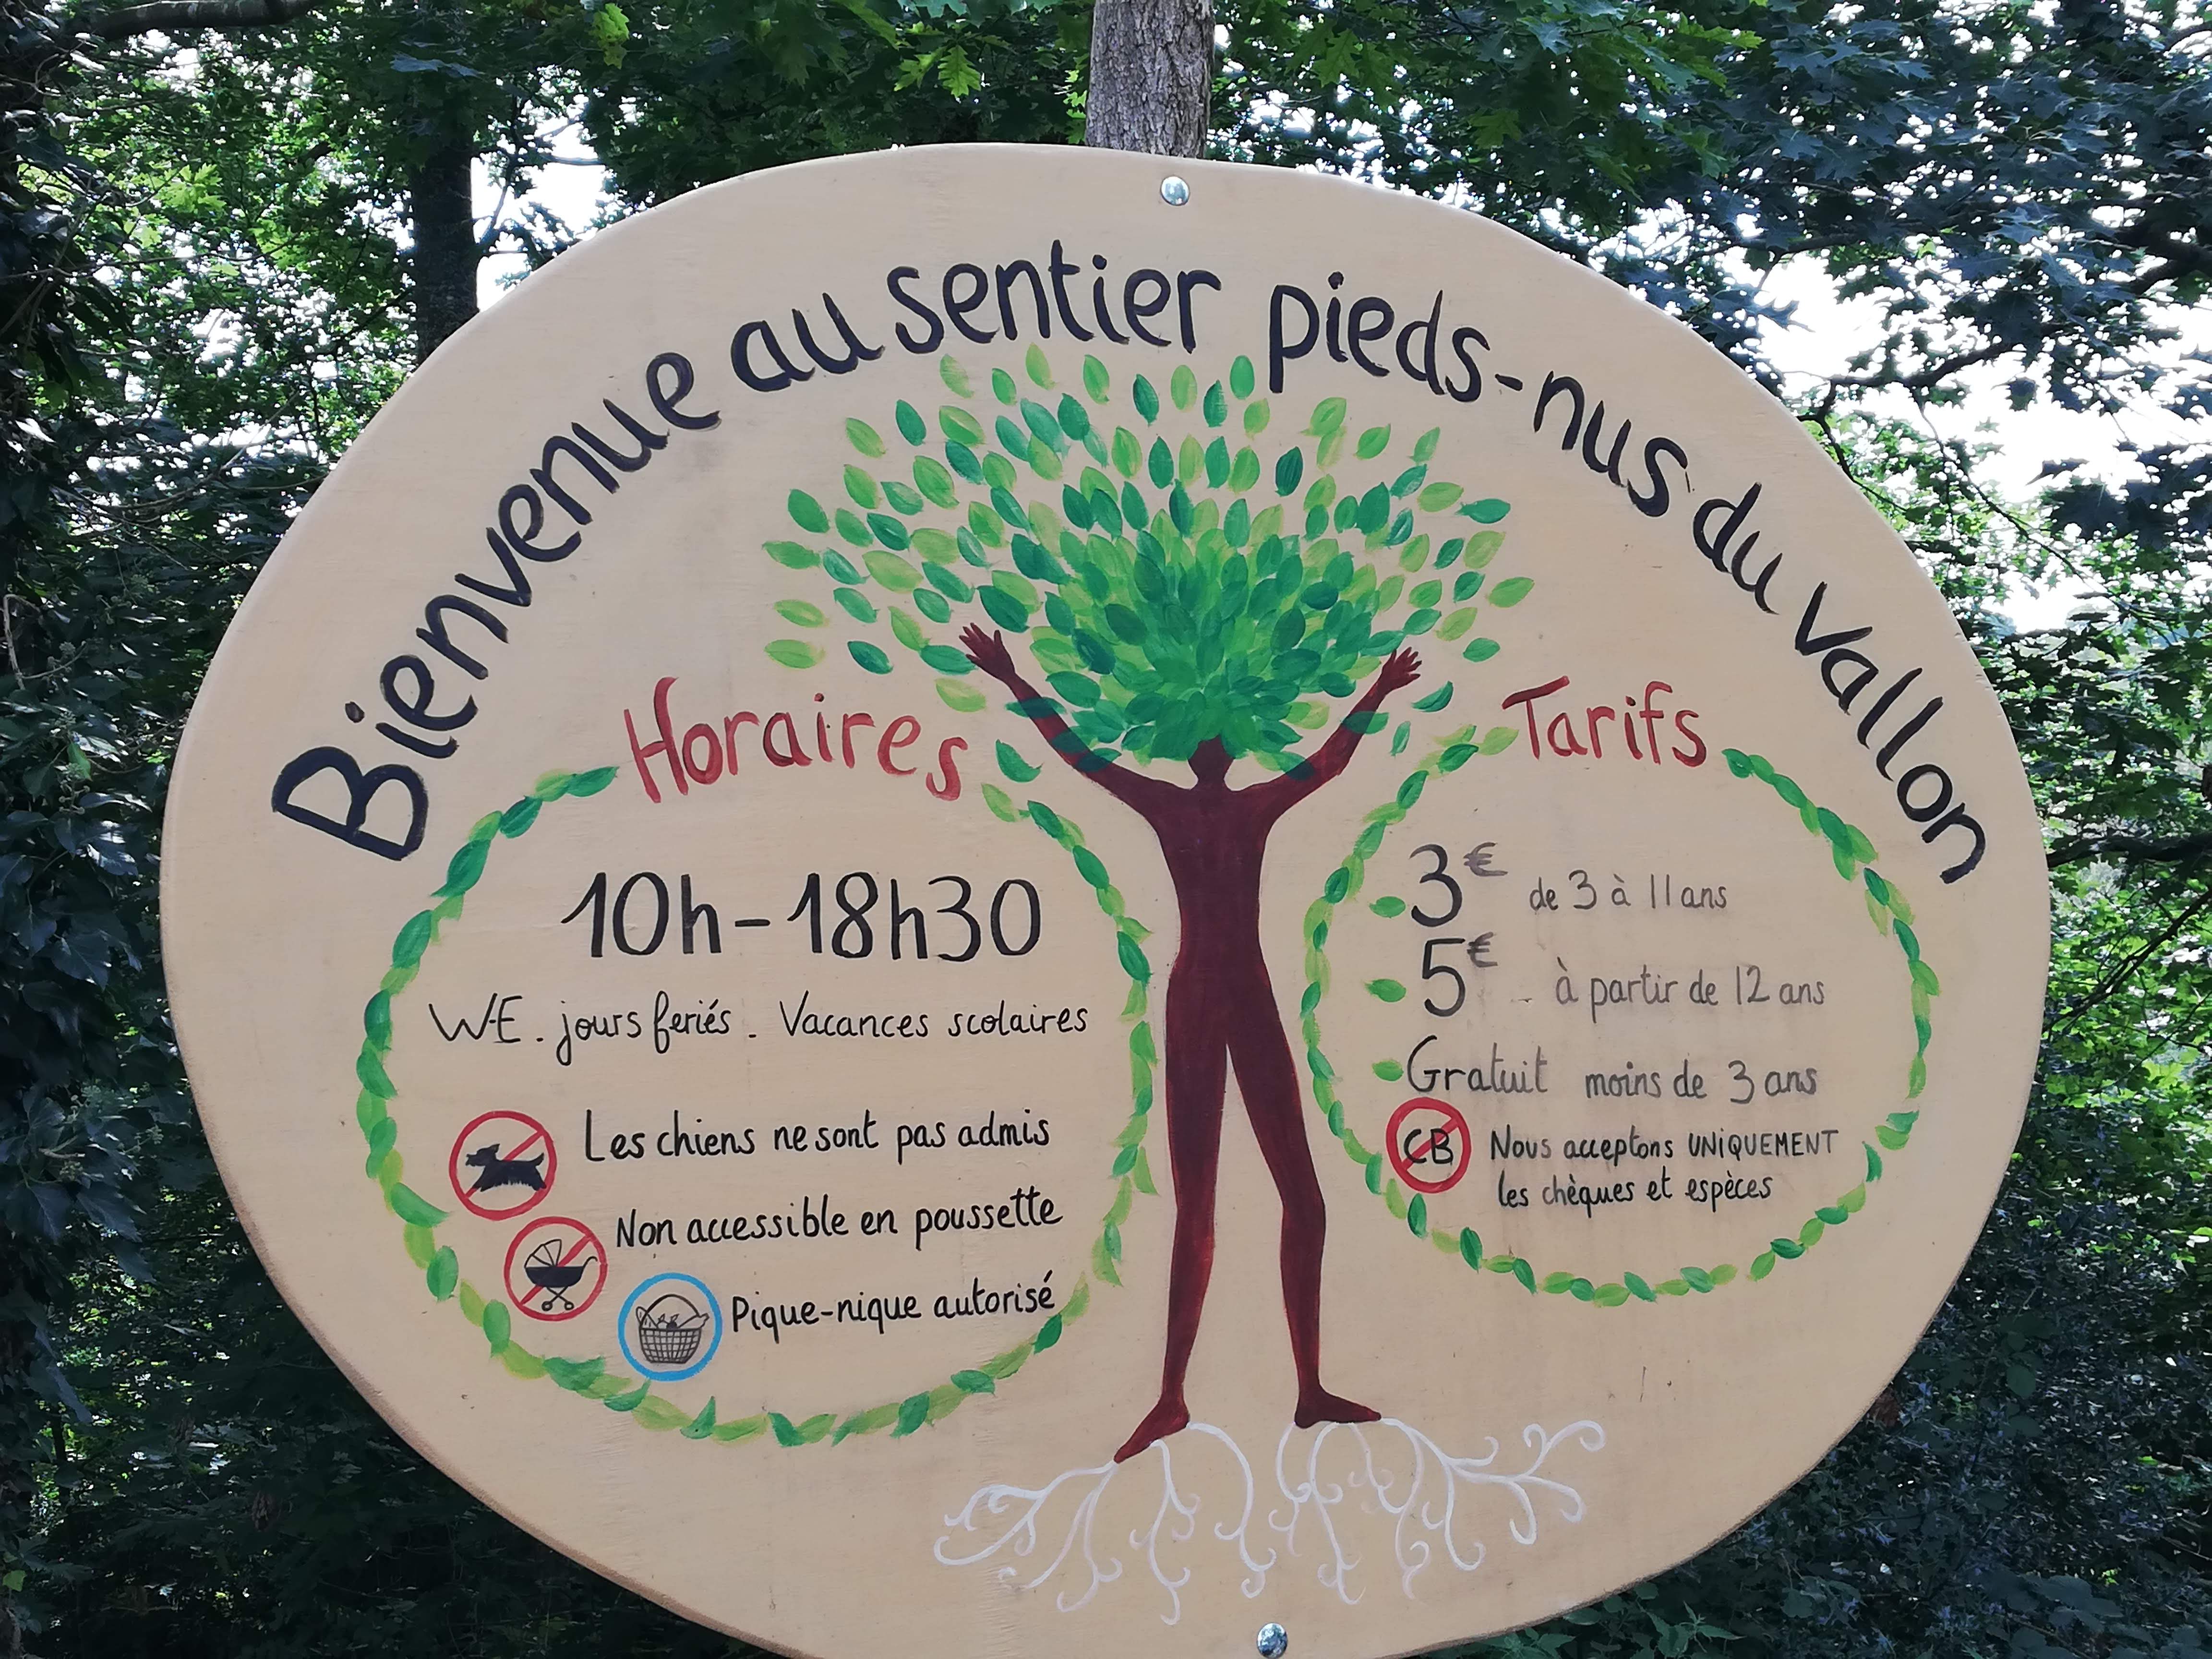 Bienvenue au sentier pieds-nus du vallon
Horaires
10h-18h30
W-E. jours feriés. Vacances scolaires
Les chiens ne sont pas admis
Non accessible en poussette
Pique-nique autorisé
Tarifs
3€ de 3 à 11 ans
5€ à partir de 12 ans
Gratuit moins de 3 ans
CB Nous acceptons UNiQUEMENT
les chèques et espèces